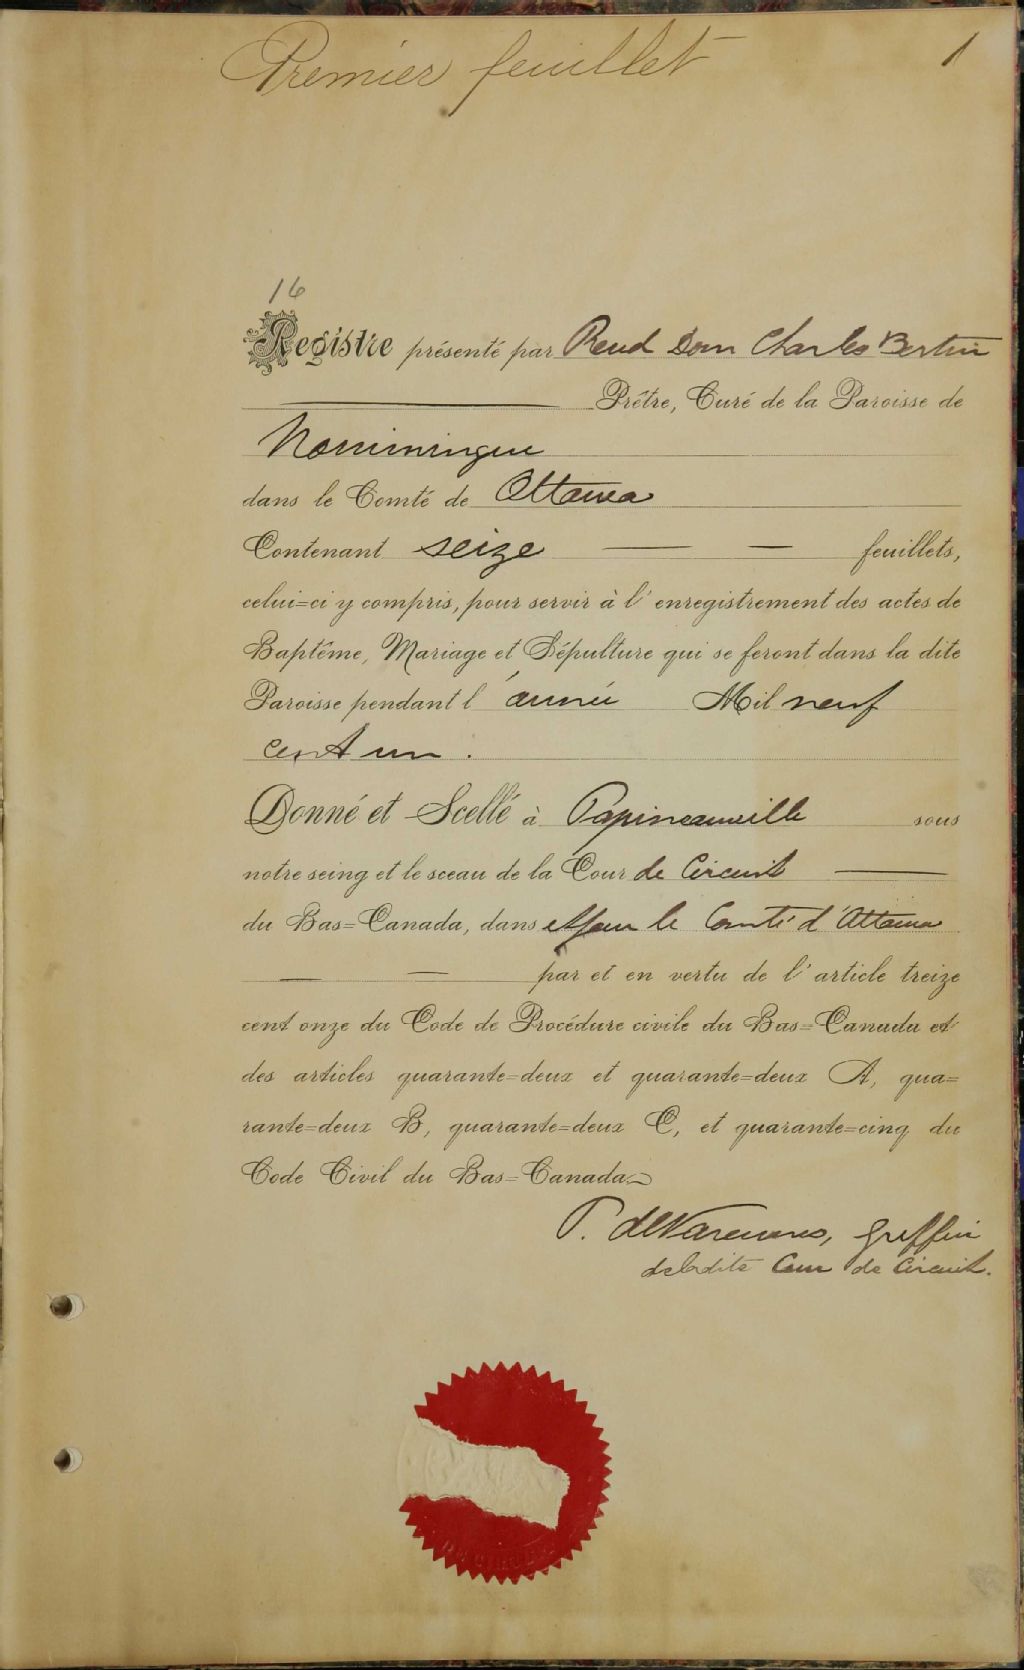 Premier feuillet
1
16
Registre présenté par Revd Dom Charles Bertin
Prêtre, Curé de la Paroisse de
Nominingue
dans le Comté de Ottawa
Contenant seize feuillets,
celui=ci y compris, pour servir à l'enregistrement des actes de
Baptême, Mariage et Sépulture qui se feront dans la dite
Paroisse pendant l'année Mil neuf
cent un.
Donné et Scellé à Papineauville sous
notre seing et le sceau de la Cour de Circuit
du Bas=Canada, dans et pour le Comté d'Ottawa
par et en vertu de l'article treize
cent onze du Code de Procédure civile du Bas=Canada et
des articles quarante=deux et quarante=deux A, qua=
rante=deux B, quarante=deux C, et quarante=cinq du
Code Civil du Bas=Canada.
P. deVarennes, Greffier
de la dite Cour de Circuit.